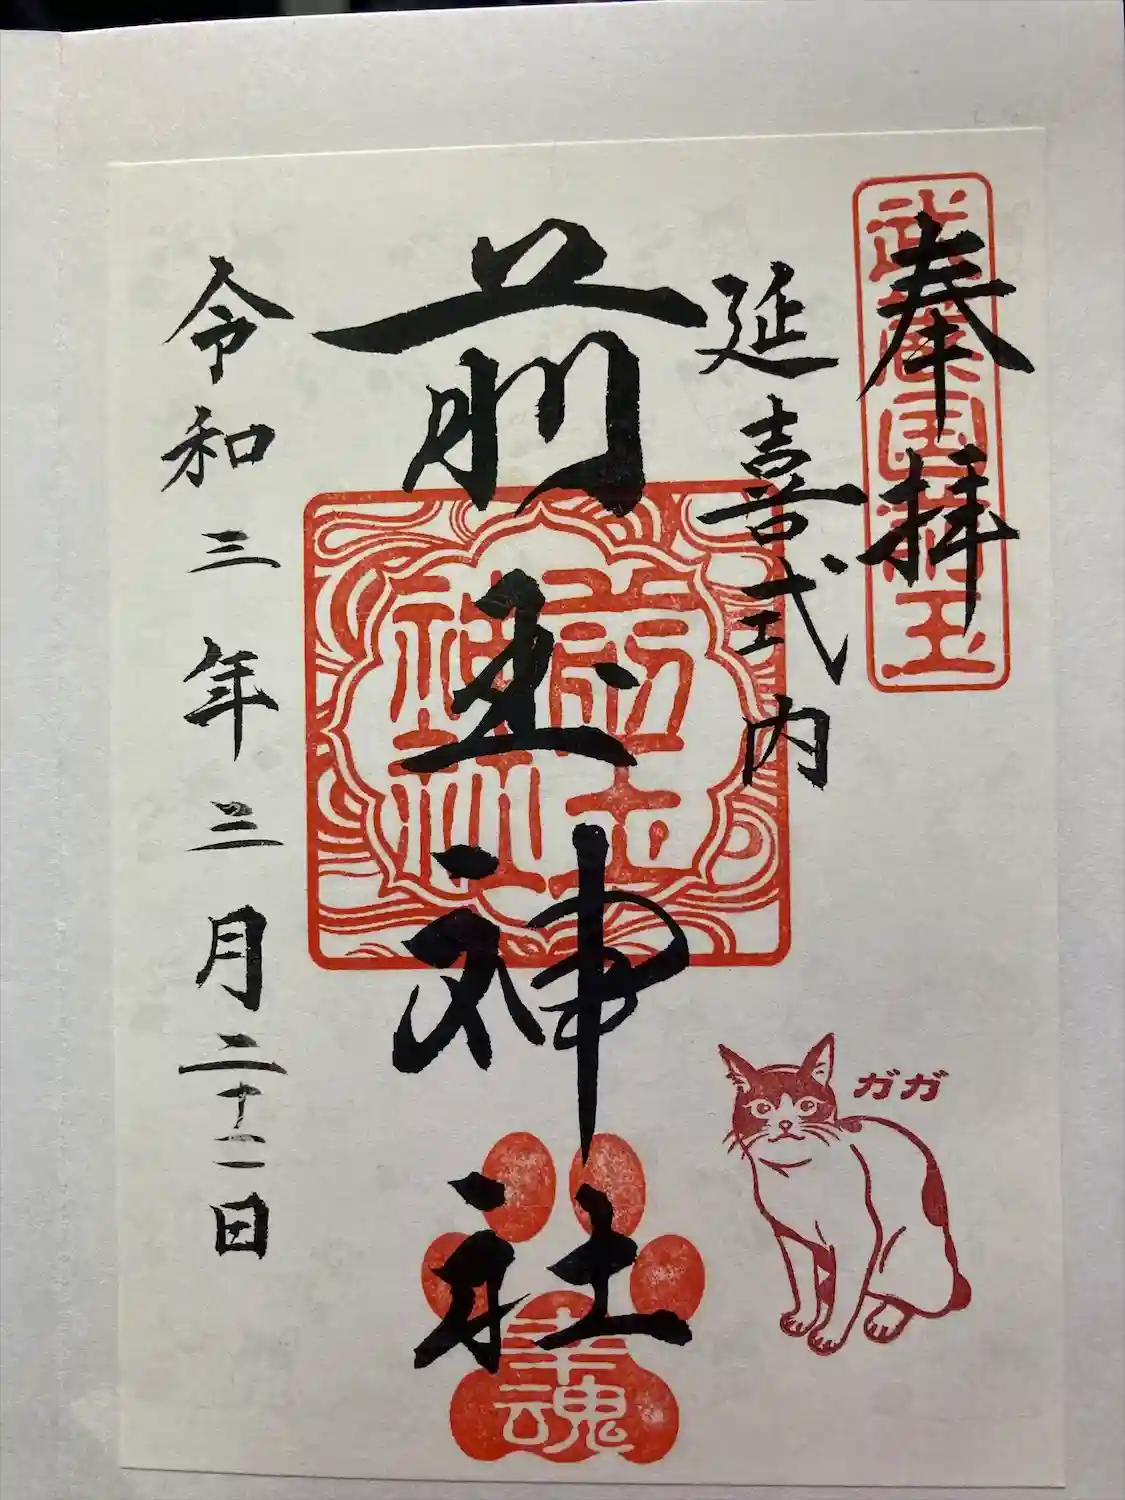 奉拝
武蔵国前玉
延喜式内
前玉神社
前玉
神社
令和三年三月二十二日
ガガ
幸魂